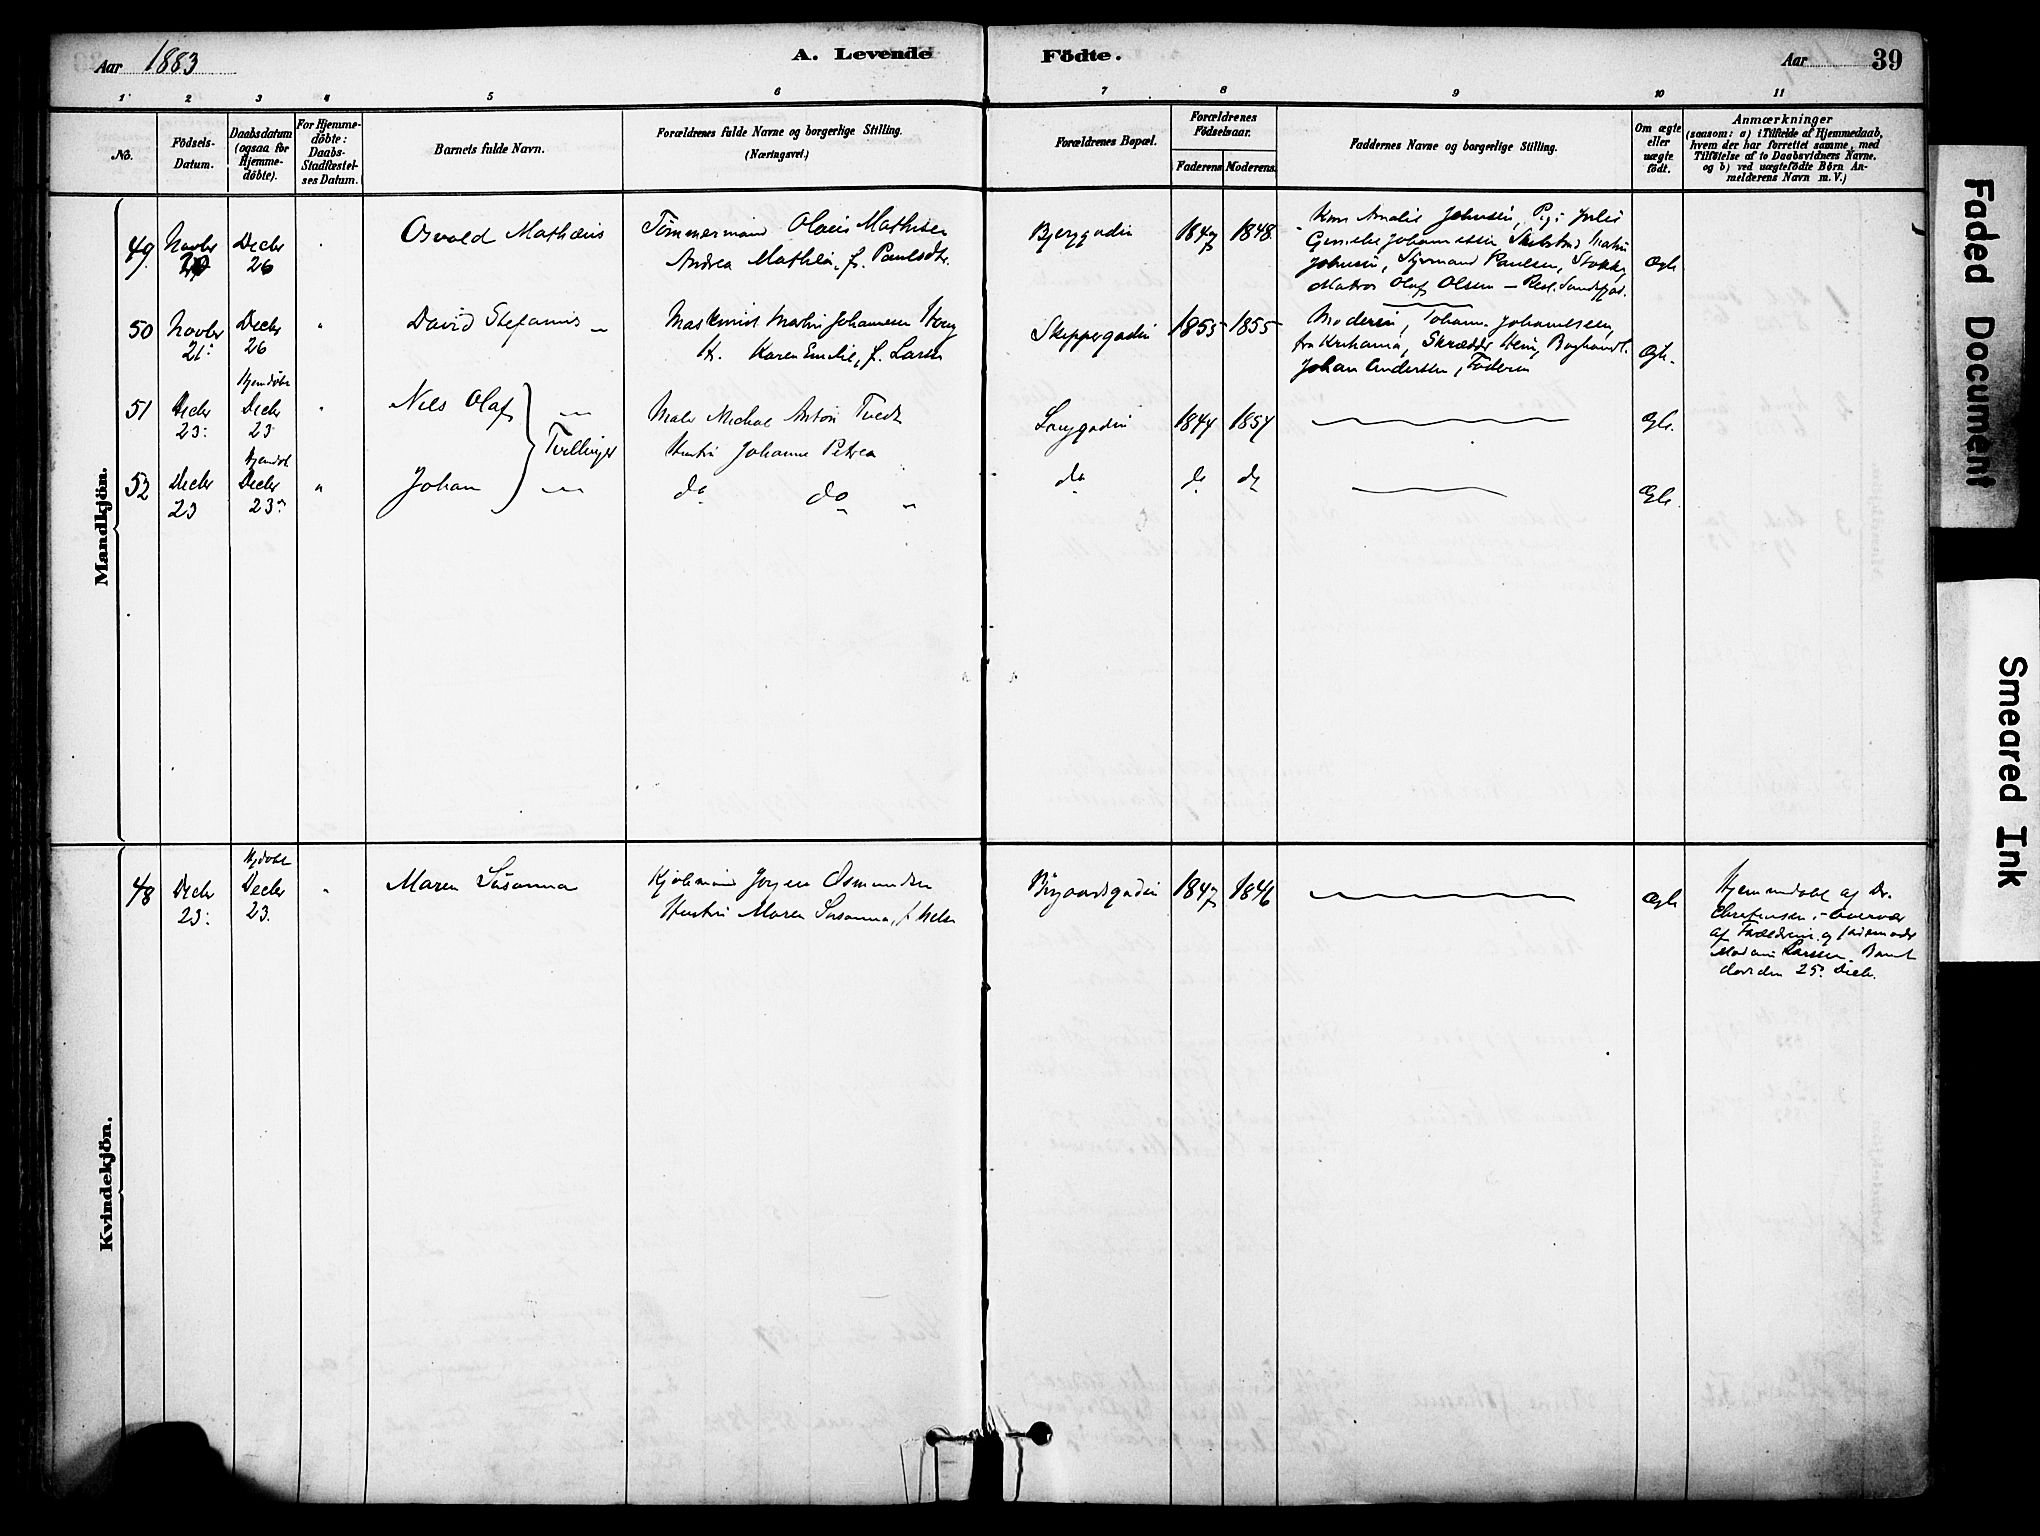 Aar 1883
A. Levende
Födte.
Aar 39
1 2 3 4 5 6 7 8 9 10 11
No.
Födsels-
Datum.
Daabsdatum
(ogsaa for
Hjemme-
döbte).
For Hjemme-
döbte:
Daabs-
Stadfæstel-
ses Datum.
Barnets fulde Navn.
Forældrenes fulde Navne og borgerlige Stilling.
(Næringsvei.)
Forældrenes Bopæl.
Forældrenes
Födselsaar.
Faderens
Moderens
Faddernes Navne og borgerlige Stilling.
Om ægte
eller
uægte
födt.
Anmærkninger
(saasom: a) i Tilfælde af Hjemmedaab,
hvem der har forrettet samme, med
Tilföielse af to Daabsvidners Navne.
og b) ved uægtefödte Börn An-
melderens Navn m. V.)
Mandkjön.
49. Novbr Decbr 26
Osvald Mathæus
Tömmermand Olaus Mathisen
Andrea Mathea, f. Paulsdtr.
Bjerggaden 1847 1848
Kone Amalie Johnsen, Pige Julie
Johannessen
Johnsen, Styrmand Paulsen, Stokke,
Matros Olaf Olsen
Ægte
50 Novbr 21: Decbr 26
David Stefanus
Maskinist Martin Johannesen
H. Karen Emilie, f. Larsen
Skippergaden 1855 1855
Moderen, Johanne Johannesen,
fra Kristiania, Skrædder
Johan Andersen, Faderen
Ægte.
51 Decbr 23: Hjemdöbt Decbr 23
Nils Olaf
Tvillinger
Maler Michael Anton Tvedt
Hustru Johanne Petrea
Langgaden 1844 1854
Ægte.
52 Decbr 23 Hjemdöbt Decbr 23:
Johan
do do
do do do
Ægte.
Kvindekjön.
48 Decbr 23: Hjdöbt Decbr 23.
Maren Susanna
Kjöbmand Jörgen Osmundsen
Hustru Maren Susanna, f. Nielsen
1847 1846
Ægte
Hjemmedöbt af Dr.
Christensen i Overvær
af Forældrene og Jordemoder
Madam Larsen. Barnet
död den 25. Decbr.
Faded Document
Smeared Ink